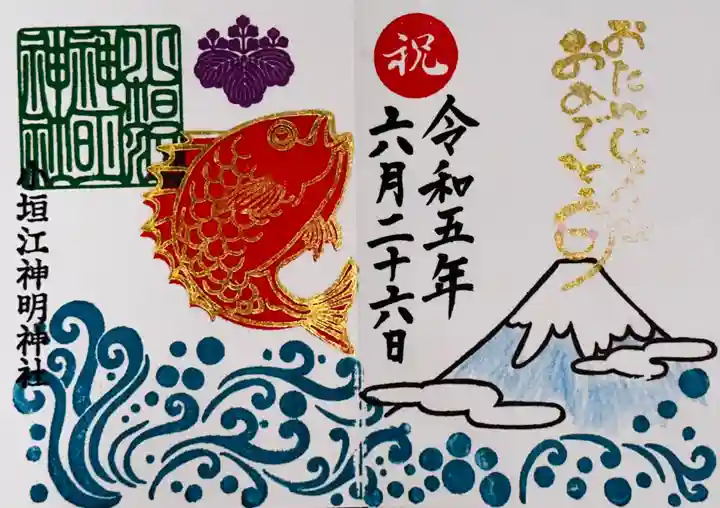 おたんじょうび
おめでとう
祝
令和五年
六月二十六日
小垣江
神明
神社
小垣江神明神社